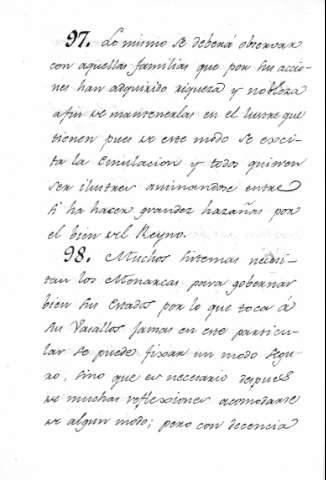 97. Lo mismo se deberá observar
con aquellas familias que por sus accio
nes han adquirido riqueza y nobleza
afin de mantenerlas en el lustre que
tienen pues de este modo se exci-
ta la emulacion y todos quieren
ser ilustres animandose entre
si ha hacer grandes hazañas por
el bien del Reyno.
98. Muchos sistemas necesi-
tan los Monarcas para gobernar
bien sus estados por lo que toca á
sus Vasallos jamas en este particu-
lar se puede fixar un modo segu-
ro, sino que es necesario despues
de muchas reflexiones acomodarse
de algun modo; pero con decencia